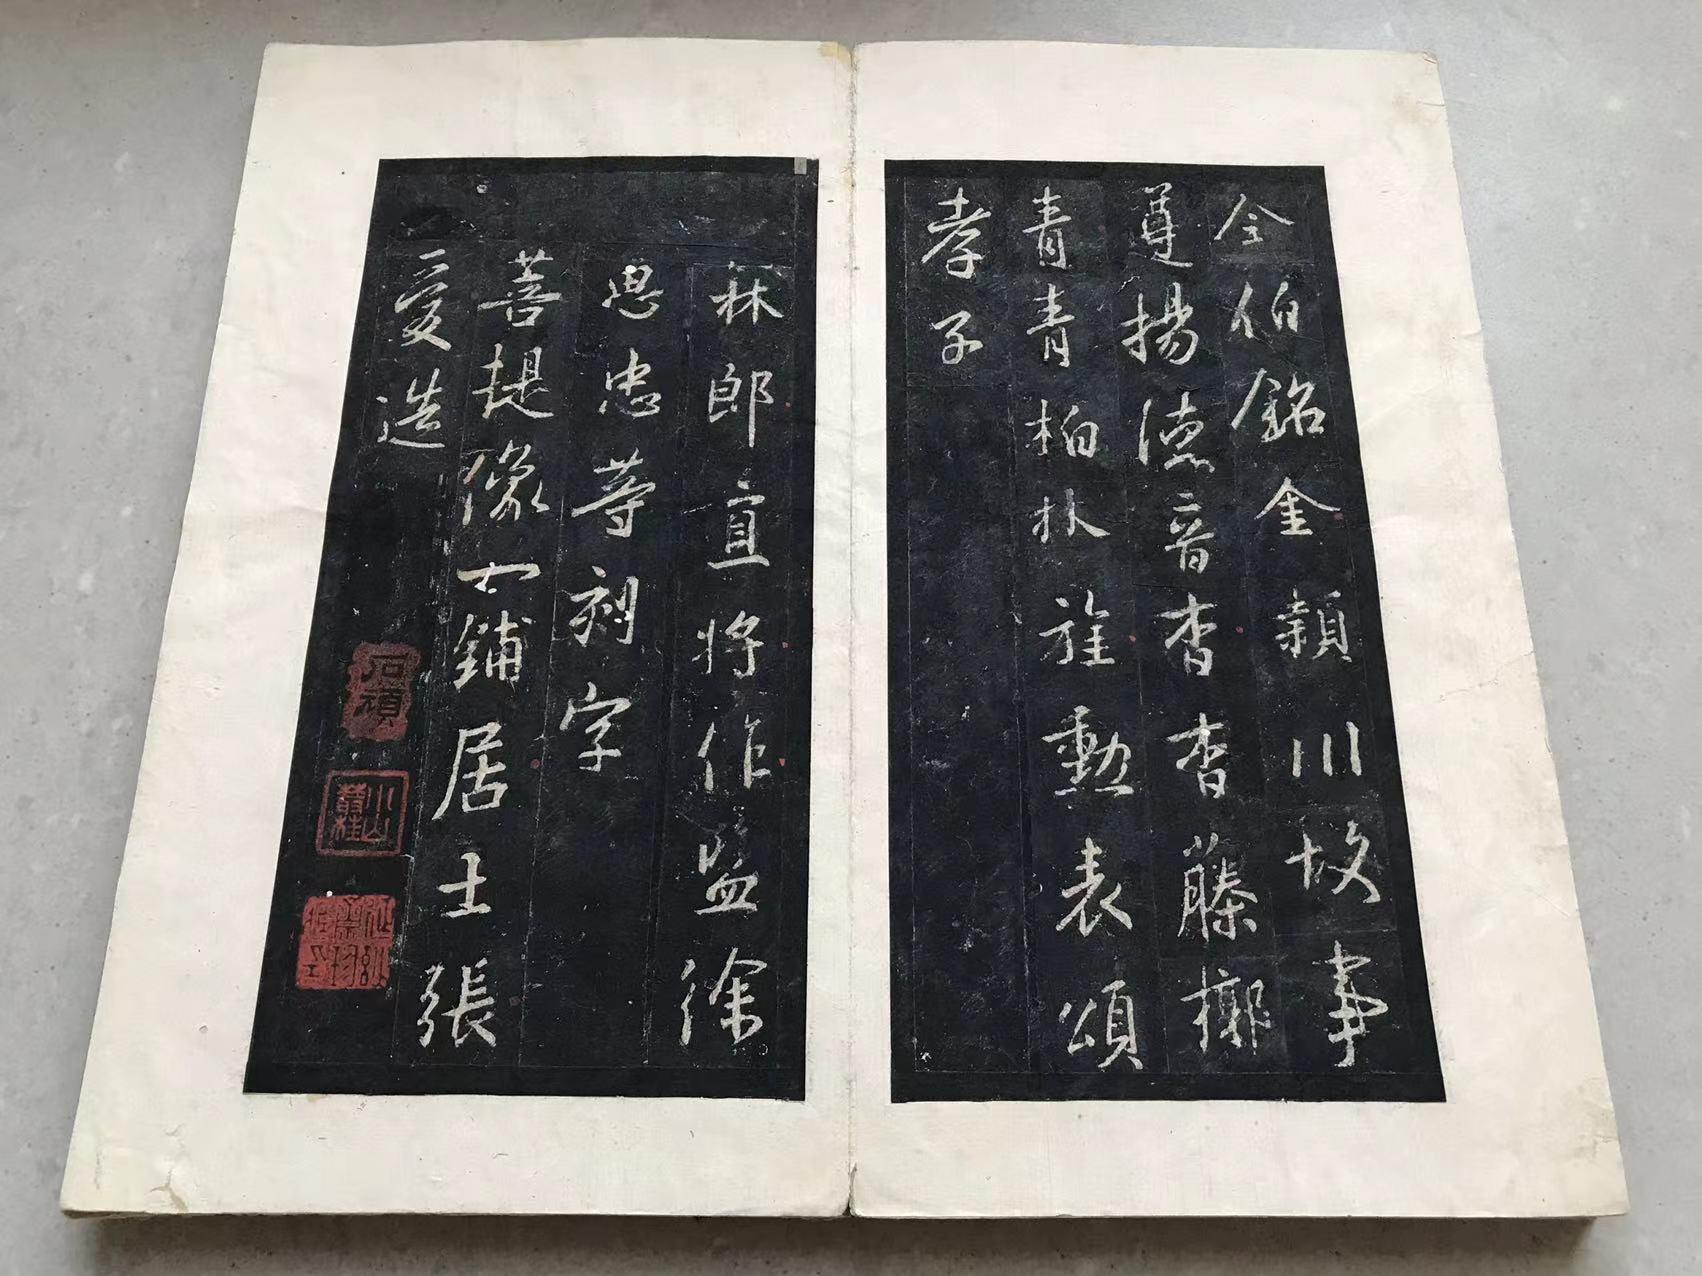 令伯銘金穎川故事
遵揚德音杳杳藤槨
青青柏林旌勳表頌
孝子
林郎直將作監徐
思忠等刻字
菩提像一鋪居士張
愛造
石頑
小山叢桂